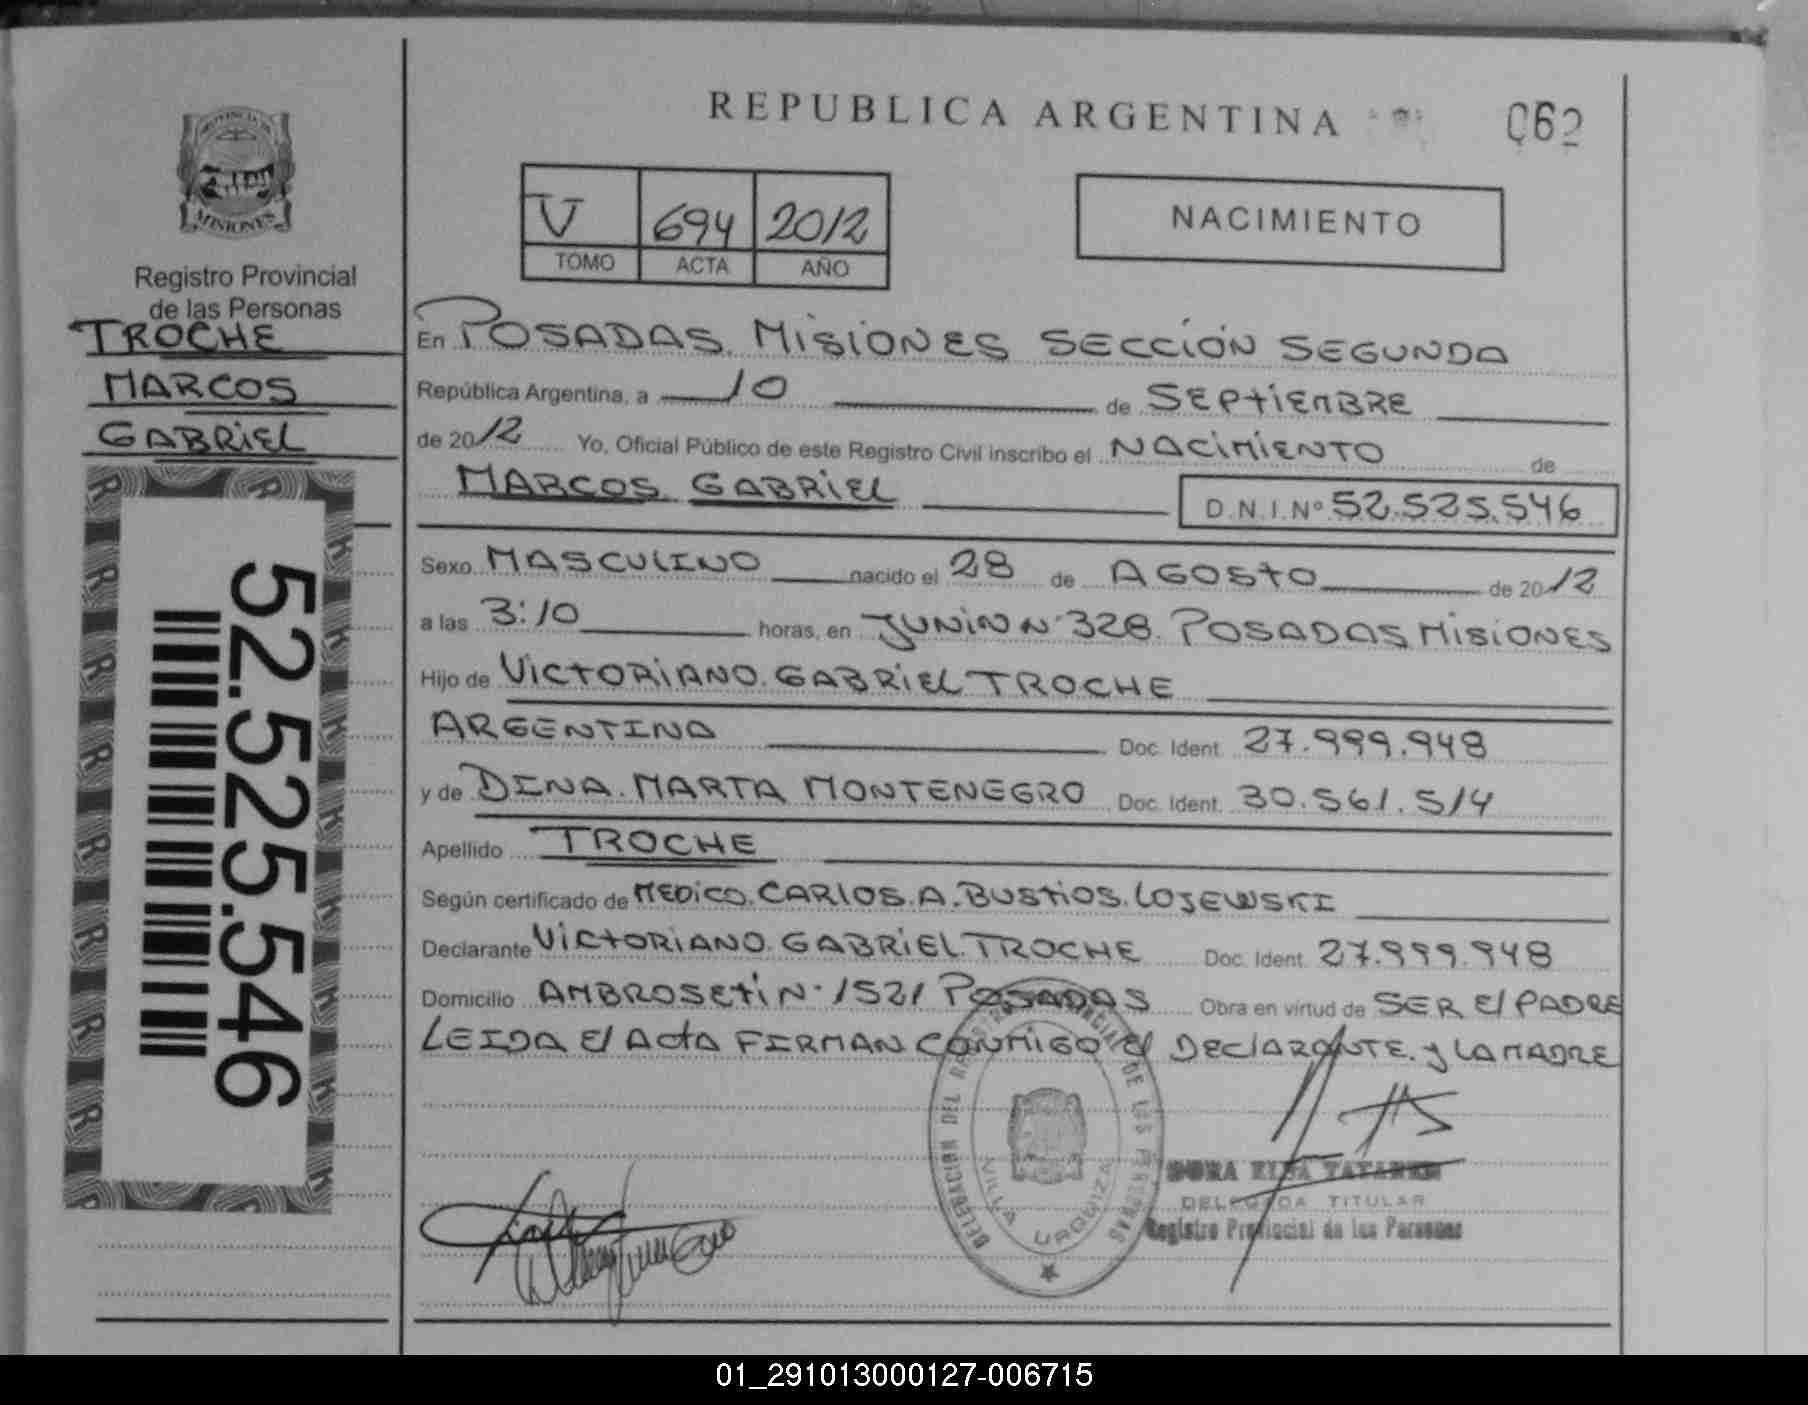 REPUBLICA ARGENTINA
062
PROVINCIA DE
MISIONES
Registro Provincial
de las Personas
TROCHE
MARCOS
GABRIEL
52.525.546
V 694 2012
TOMO ACTA AÑO
NACIMIENTO
En POSADAS. MISIONES SECCIÓN SEGUNDA
República Argentina, a 10 de SEPTIEMBRE
de 2012 Yo, Oficial Público de este Registro Civil inscribo el NACIMIENTO de
MARCOS GABRIEL D.N.I.Nº 52.525.546
Sexo MASCULINO nacido el 28 de AGOSTO de 2012
a las 3:10 horas, en JUNIN N° 328. POSADAS MISIONES
Hijo de VICTORIANO. GABRIEL TROCHE
ARGENTINA Doc. Ident. 27.999.948
y de DINA. MARTA MONTENEGRO Doc. Ident. 30.561.514
Apellido TROCHE
Según certificado de MEDICO. CARLOS. A. BUSTIOS. LOJEWSKI
Declarante VICTORIANO. GABRIEL. TROCHE Doc. Ident. 27.999.948
Domicilio AMBROSETTI N° 1521 POSADAS Obra en virtud de SER El PADRE
LEIDA El ACTA FIRMAN CONMIGO El DECLARANTE. y LA MADRE
DELEGACION DEL REGISTRO PROVINCIAL DE LAS PERSONAS
VILLA URQUIZA
DELEGADA TITULAR
Registro Provincial de las Personas
01_291013000127-006715